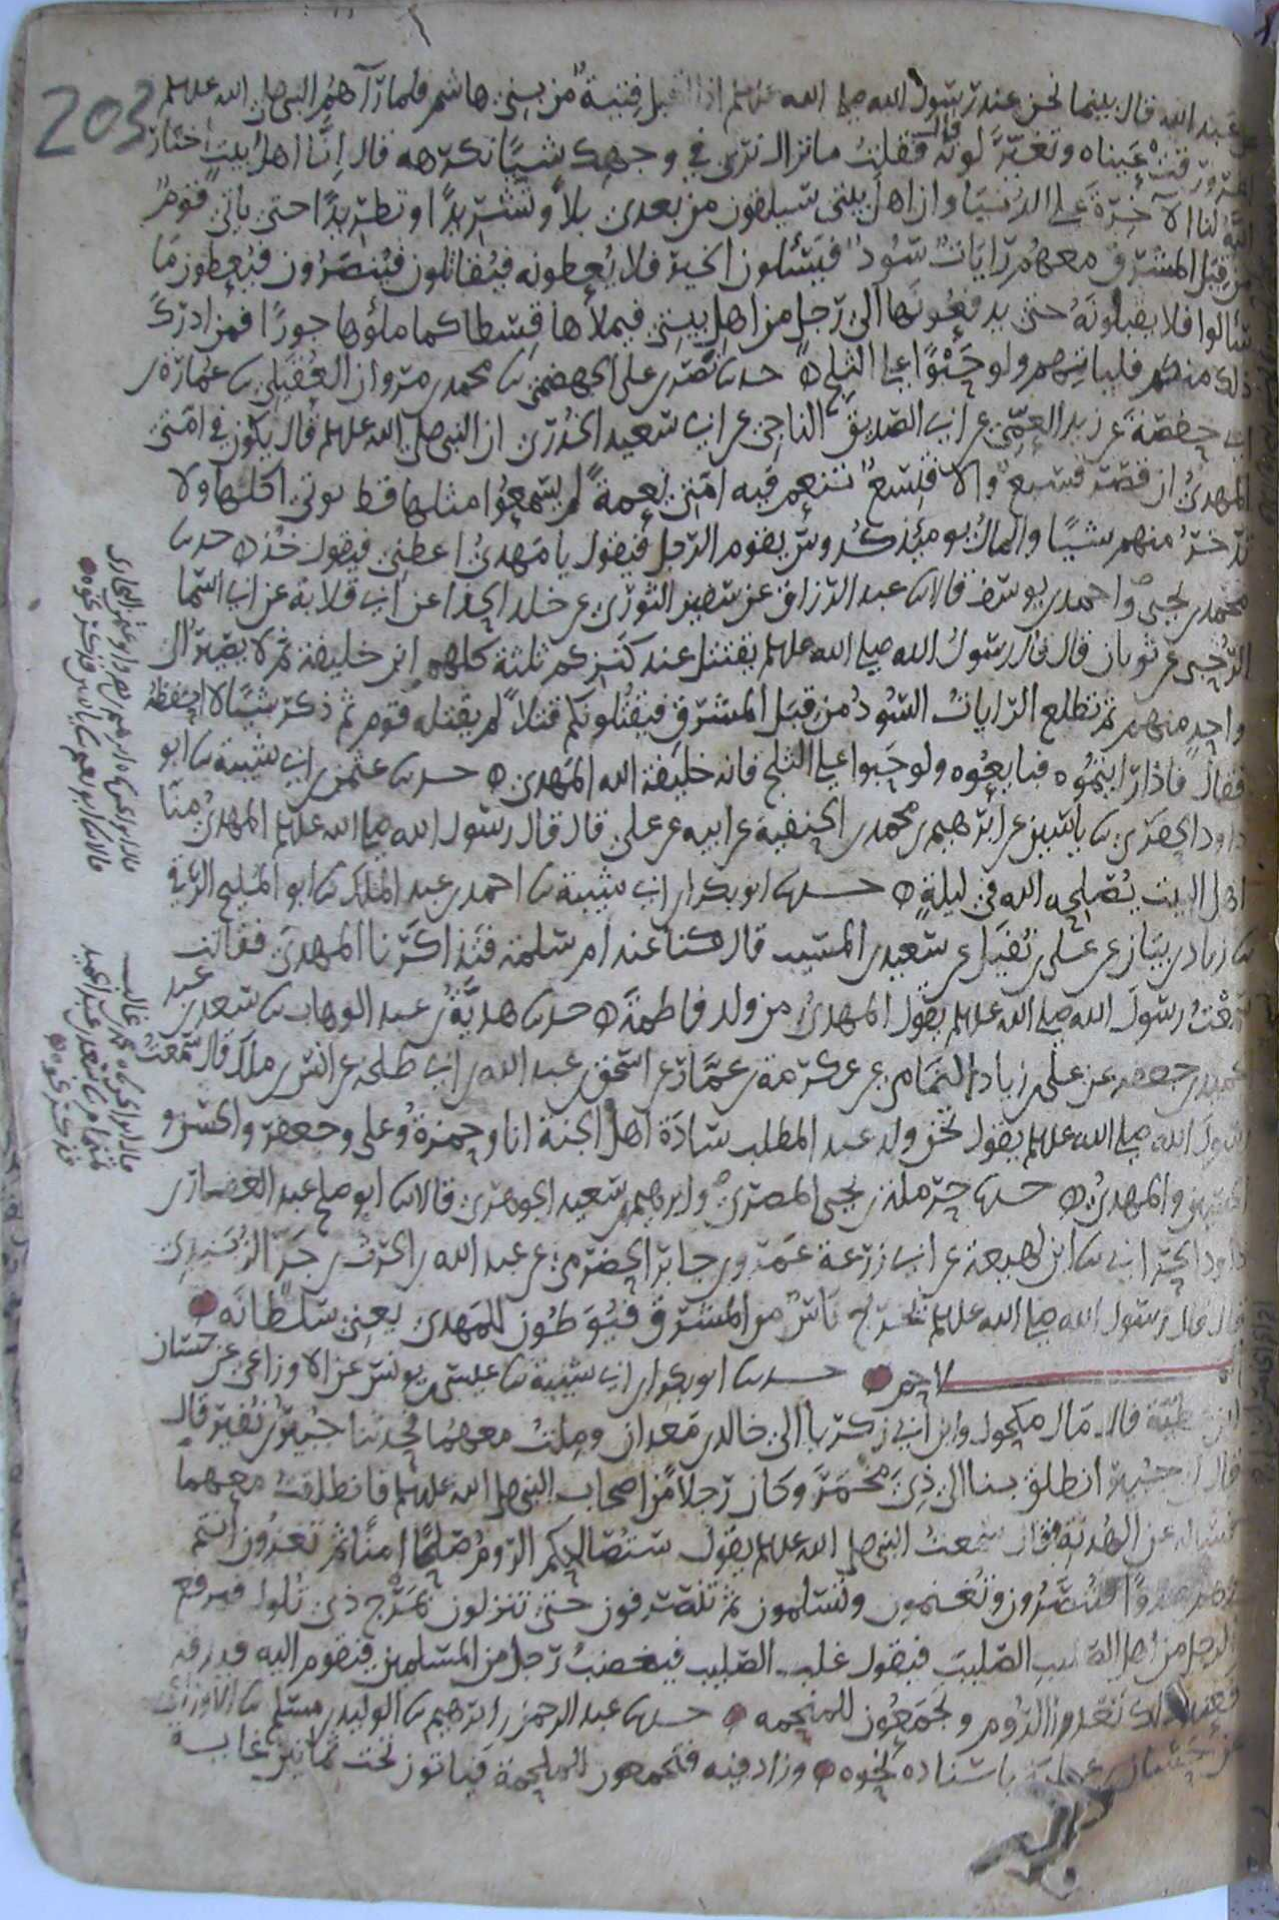 203
عن عبد الله قال بينما نحن عند رسول الله صلى الله عليه وسلم اذ اقبل فتية من بني هاشم فلما رآهم النبي صلى الله عليه وسلم
اغرورقت عيناه وتغير لونه قال فقلت ما نزال نرى في وجهك شيئا نكرهه قال إنا اهل بيت اختار
الله لنا الآخرة على الدنيا وان اهل بيتي سيلقون من بعدي بلاء وتشريدا وتطريدا حتى يأتي قوم
من قبل المشرق معهم رايات سود فيسئلون الخير فلا يعطونه فيقاتلون فينصرون فيعطون ما
سألوا فلا يقبلونه حتى يدفعونها الى رجل من اهل بيتي فيملأها قسطا كما ملؤها جورا فمن ادرك
ذلك منكم فلياتهم ولو حبوا على الثلج حدثنا نصر بن علي الجهضمي ثنا محمد بن مروان العقيلي ثنا عمارة بن
ابي حفصة عن زيد العمي عن ابي الصديق الناجي عن ابي سعيد الخدري ان النبي صلى الله عليه وسلم قال يكون في امتي
المهدي ان قصر فسبع والا فتسع تنعم فيه امتي نعمة لم يسمعوا مثلها قط توتي اكلها ولا
تدخر منهم شيئا والمال يومئذ كدوس يقوم الرجل فيقول يا مهدي اعطني فيقول خذ حدثنا
محمد بن يحيى واحمد بن يوسف قالا ثنا عبد الرزاق عن سفين الثوري عن خالد الحذا عن ابي قلابة عن ابي اسما
الرحبي عن ثوبان قال قال رسول الله صلى الله عليه وسلم يقتتل عند كنزكم ثلثة كلهم ابن خليفة ثم لا يصير الى
واحد منهم ثم تطلع الرايات السود من قبل المشرق فيقتلونكم قتلا لم يقتله قوم ثم ذكر شيئا لا احفظه
فقال فاذا رايتموه فبايعوه ولو حبوا على الثلج فانه خليفة الله المهدي حدثنا عثمن بن ابي شيبة ثنا ابو
داود الحفري ثنا ياسين عن ابرهيم بن محمد بن الحنفية عن ابيه عن علي قال قال رسول الله صلى الله عليه وسلم المهدي منا
اهل البيت يصلحه الله في ليلة حدثنا ابو بكر بن ابي شيبة ثنا احمد بن عبد الملك ثنا ابو المليح الرقي
ثنا زياد بن بيان عن علي بن نفيل عن سعيد بن المسيب قال كنا عند ام سلمة فتذاكرنا المهدي فقالت
سمعت رسول الله صلى الله عليه وسلم يقول المهدي من ولد فاطمة حدثنا هدية بن عبد الوهاب ثنا سعد بن عبد
الحميد بن جعفر عن علي بن زياد اليمامي عن عكرمة بن عمار عن اسحق بن عبد الله بن ابي طلحة عن انس بن ملك قال سمعت
رسول الله صلى الله عليه وسلم يقول نحن ولد عبد المطلب سادة اهل الجنة انا وحمزة وعلي وجعفر والحسن و
الحسين والمهدي حدثنا حرملة بن يحيى المصري وابرهيم بن سعيد الجوهري قالا ثنا ابو صالح عبد الغفار بن
داود الحراني ثنا ابن لهيعة عن ابي زرعة عمرو بن جابر الحضرمي عن عبد الله بن الحرث بن جزء الزبيدي
قال قال رسول الله صلى الله عليه وسلم يخرج ناس من المشرق فيوطون للمهدي يعني سلطانه
الملاحم حدثنا ابو بكر بن ابي شيبة ثنا عيسى بن يونس عن الاوزاعي عن حسان
ابن عطية قال مال مكحول وابن ابي زكريا الى خالد بن معدان وملت معهما فحدثنا عن جبير بن نفير قال
قال لي جبير انطلق بنا الى ذي مخمر وكان رجلا من اصحاب النبي صلى الله عليه وسلم فانطلقت معهما
فسأله عن الهدنة فقال سمعت النبي صلى الله عليه وسلم يقول ستصالحكم الروم صلحا امنا ثم تغزون انتم
وهم عدوا فتنصرون وتغنمون وتسلمون ثم تنصرفون حتى تنزلون بمرج ذي تلول فيرفع
الرجل من اهل الصليب الصليب فيقول غلب الصليب فيغضب رجل من المسلمين فيقوم اليه فيدقه
فعند ذلك تغدر الروم ويجمعون للملحمة حدثنا عبد الرحمن بن ابرهيم ثنا الوليد بن مسلم ثنا الاوزاعي
عن حسان بن عطية باسناده نحوه وزاد فيه فيجمعون للملحمة فياتون تحت ثمانين غاية